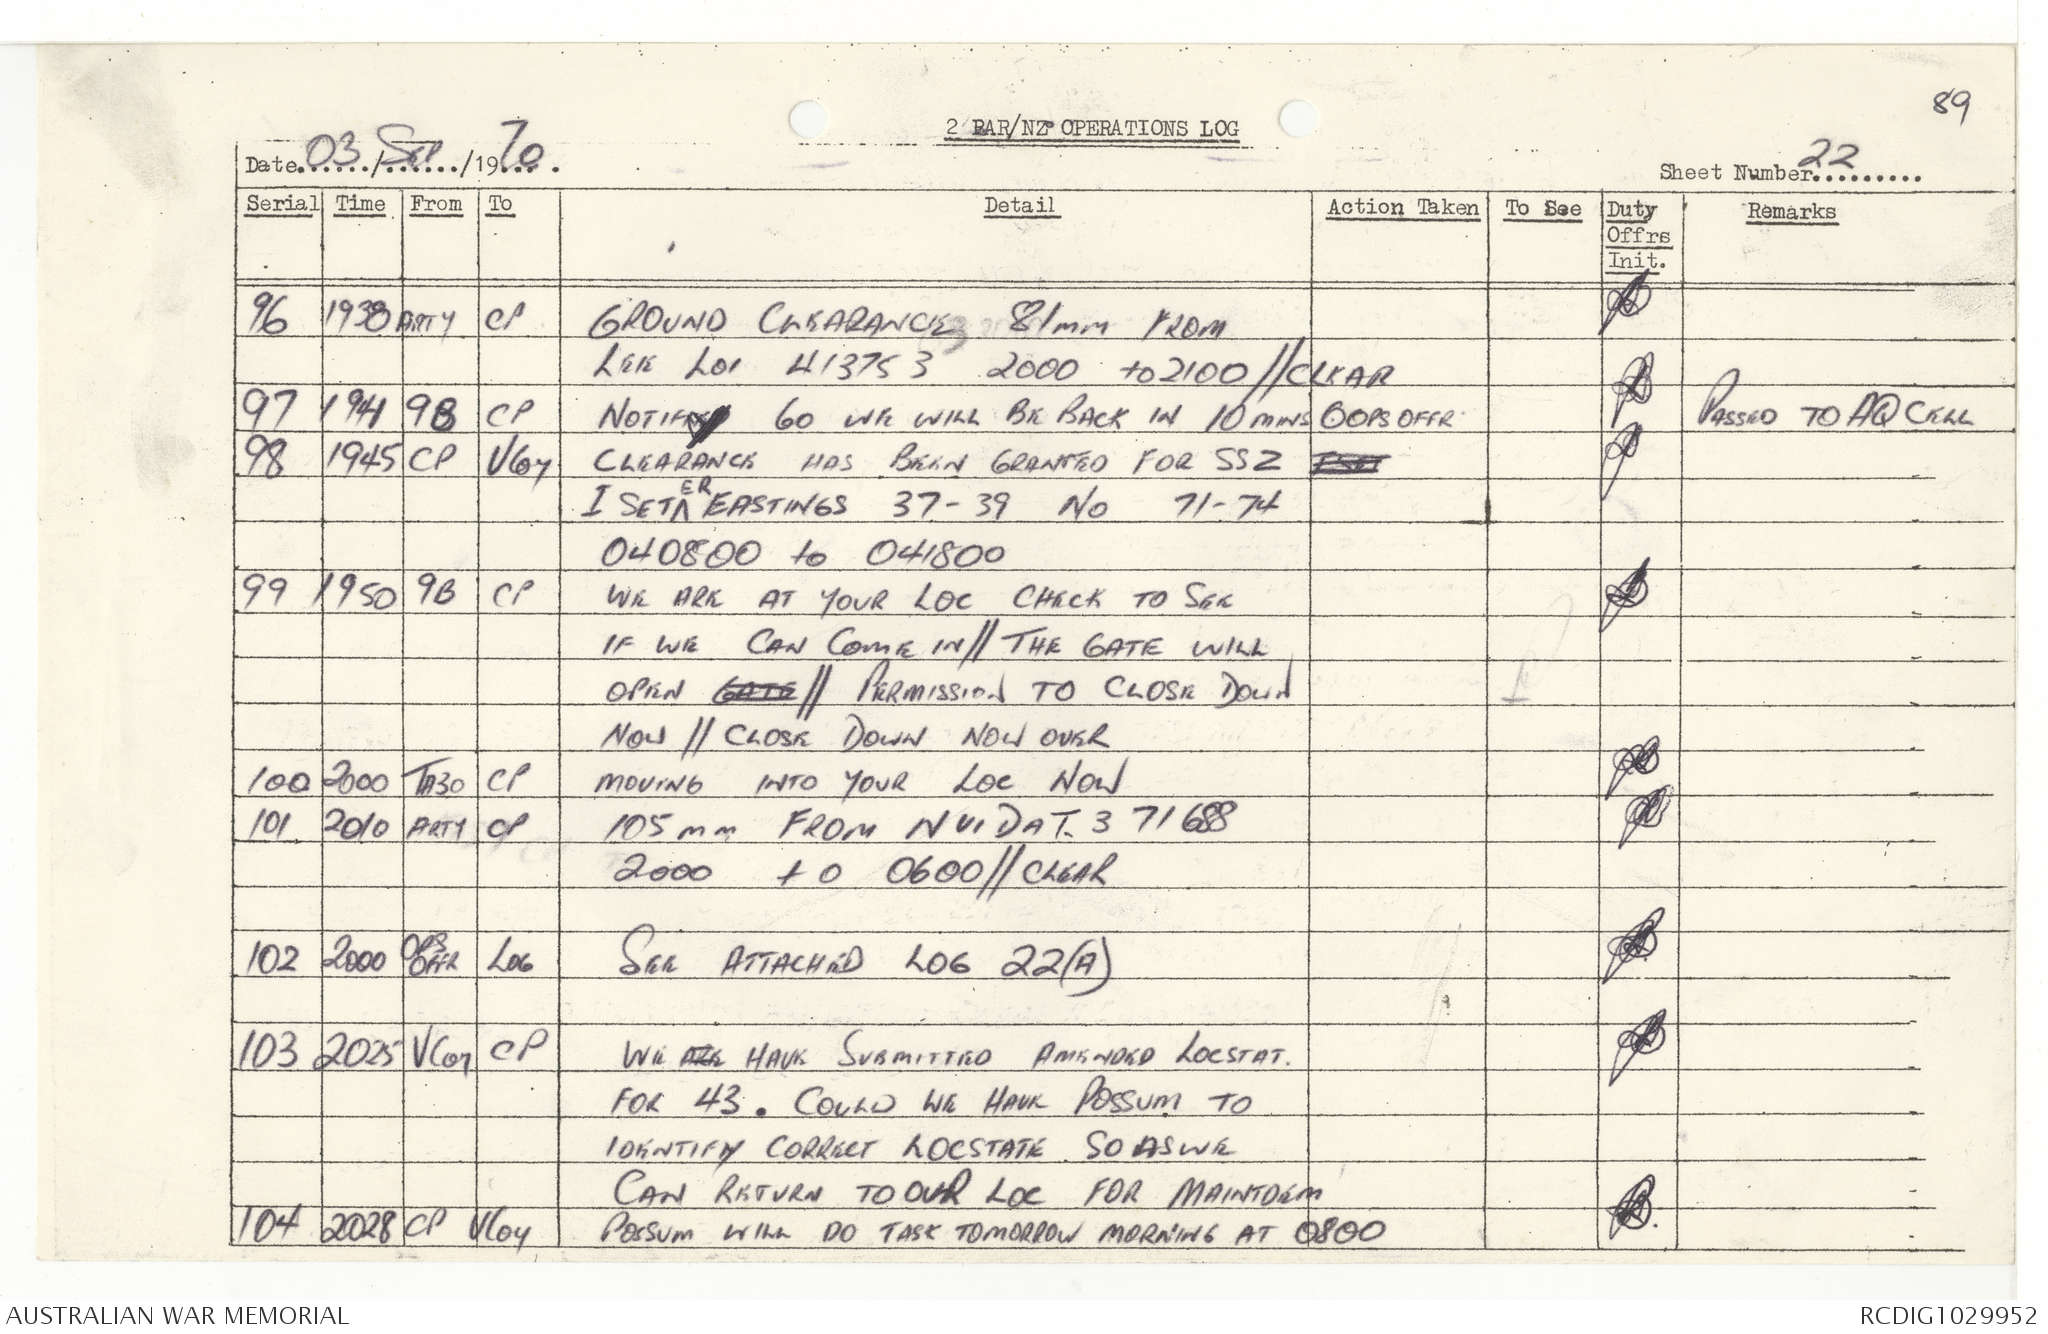 89
2 RAR/NZ OPERATIONS LOG
Date 03/Sep/1970.
Sheet Number 22
Serial Time From To Detail Action Taken To See Duty Offrs Init. Remarks
96 1938 ARTY CP GROUND CLEARANCE 81mm FROM
LEE LOI 413753 2000 to 2100 // CLEAR
97 1941 9B CP NOTIFY 60 WE WILL BE BACK IN 10 MINS OOPSOFFR PASSED TO AQ CELL
98 1945 CP VCoy CLEARANCE HAS BEEN GRANTED FOR SSZ
I SET ER EASTINGS 37-39 No 71-74
040800 to 041800
99 1950 9B CP WE ARE AT YOUR LOC CHECK TO SEE
IF WE CAN COME IN // THE GATE WILL
OPEN GATE // PERMISSION TO CLOSE DOWN
NOW // CLOSE DOWN NOW OVER
100 2000 TA30 CP MOVING INTO YOUR LOC NOW
101 2010 ARTY CP 105mm FROM NUI DAT. 371688
2000 to 0600 // CLEAR
102 2000 OPS OFFR LOG SEE ATTACHED LOG 22(A)
103 2025 VCoy CP WE ARE HAVE SUBMITTED AMENDED LOCSTAT.
FOR 43. COULD WE HAVE POSSUM TO
IDENTIFY CORRECT LOCSTATE SO AS WE
CAN RETURN TO OUR LOC FOR MAINTDEM
104 2028 CP VCoy POSSUM WILL DO TASK TOMORROW MORNING AT 0800
AUSTRALIAN WAR MEMORIAL
RCDIG1029952